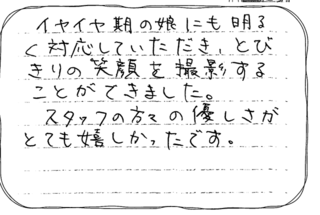 イヤイヤ期の娘にも明る
く対応していただき、とび
きりの笑顔を撮影する
ことができました。
スタッフの方々の優しさが
とても嬉しかったです。